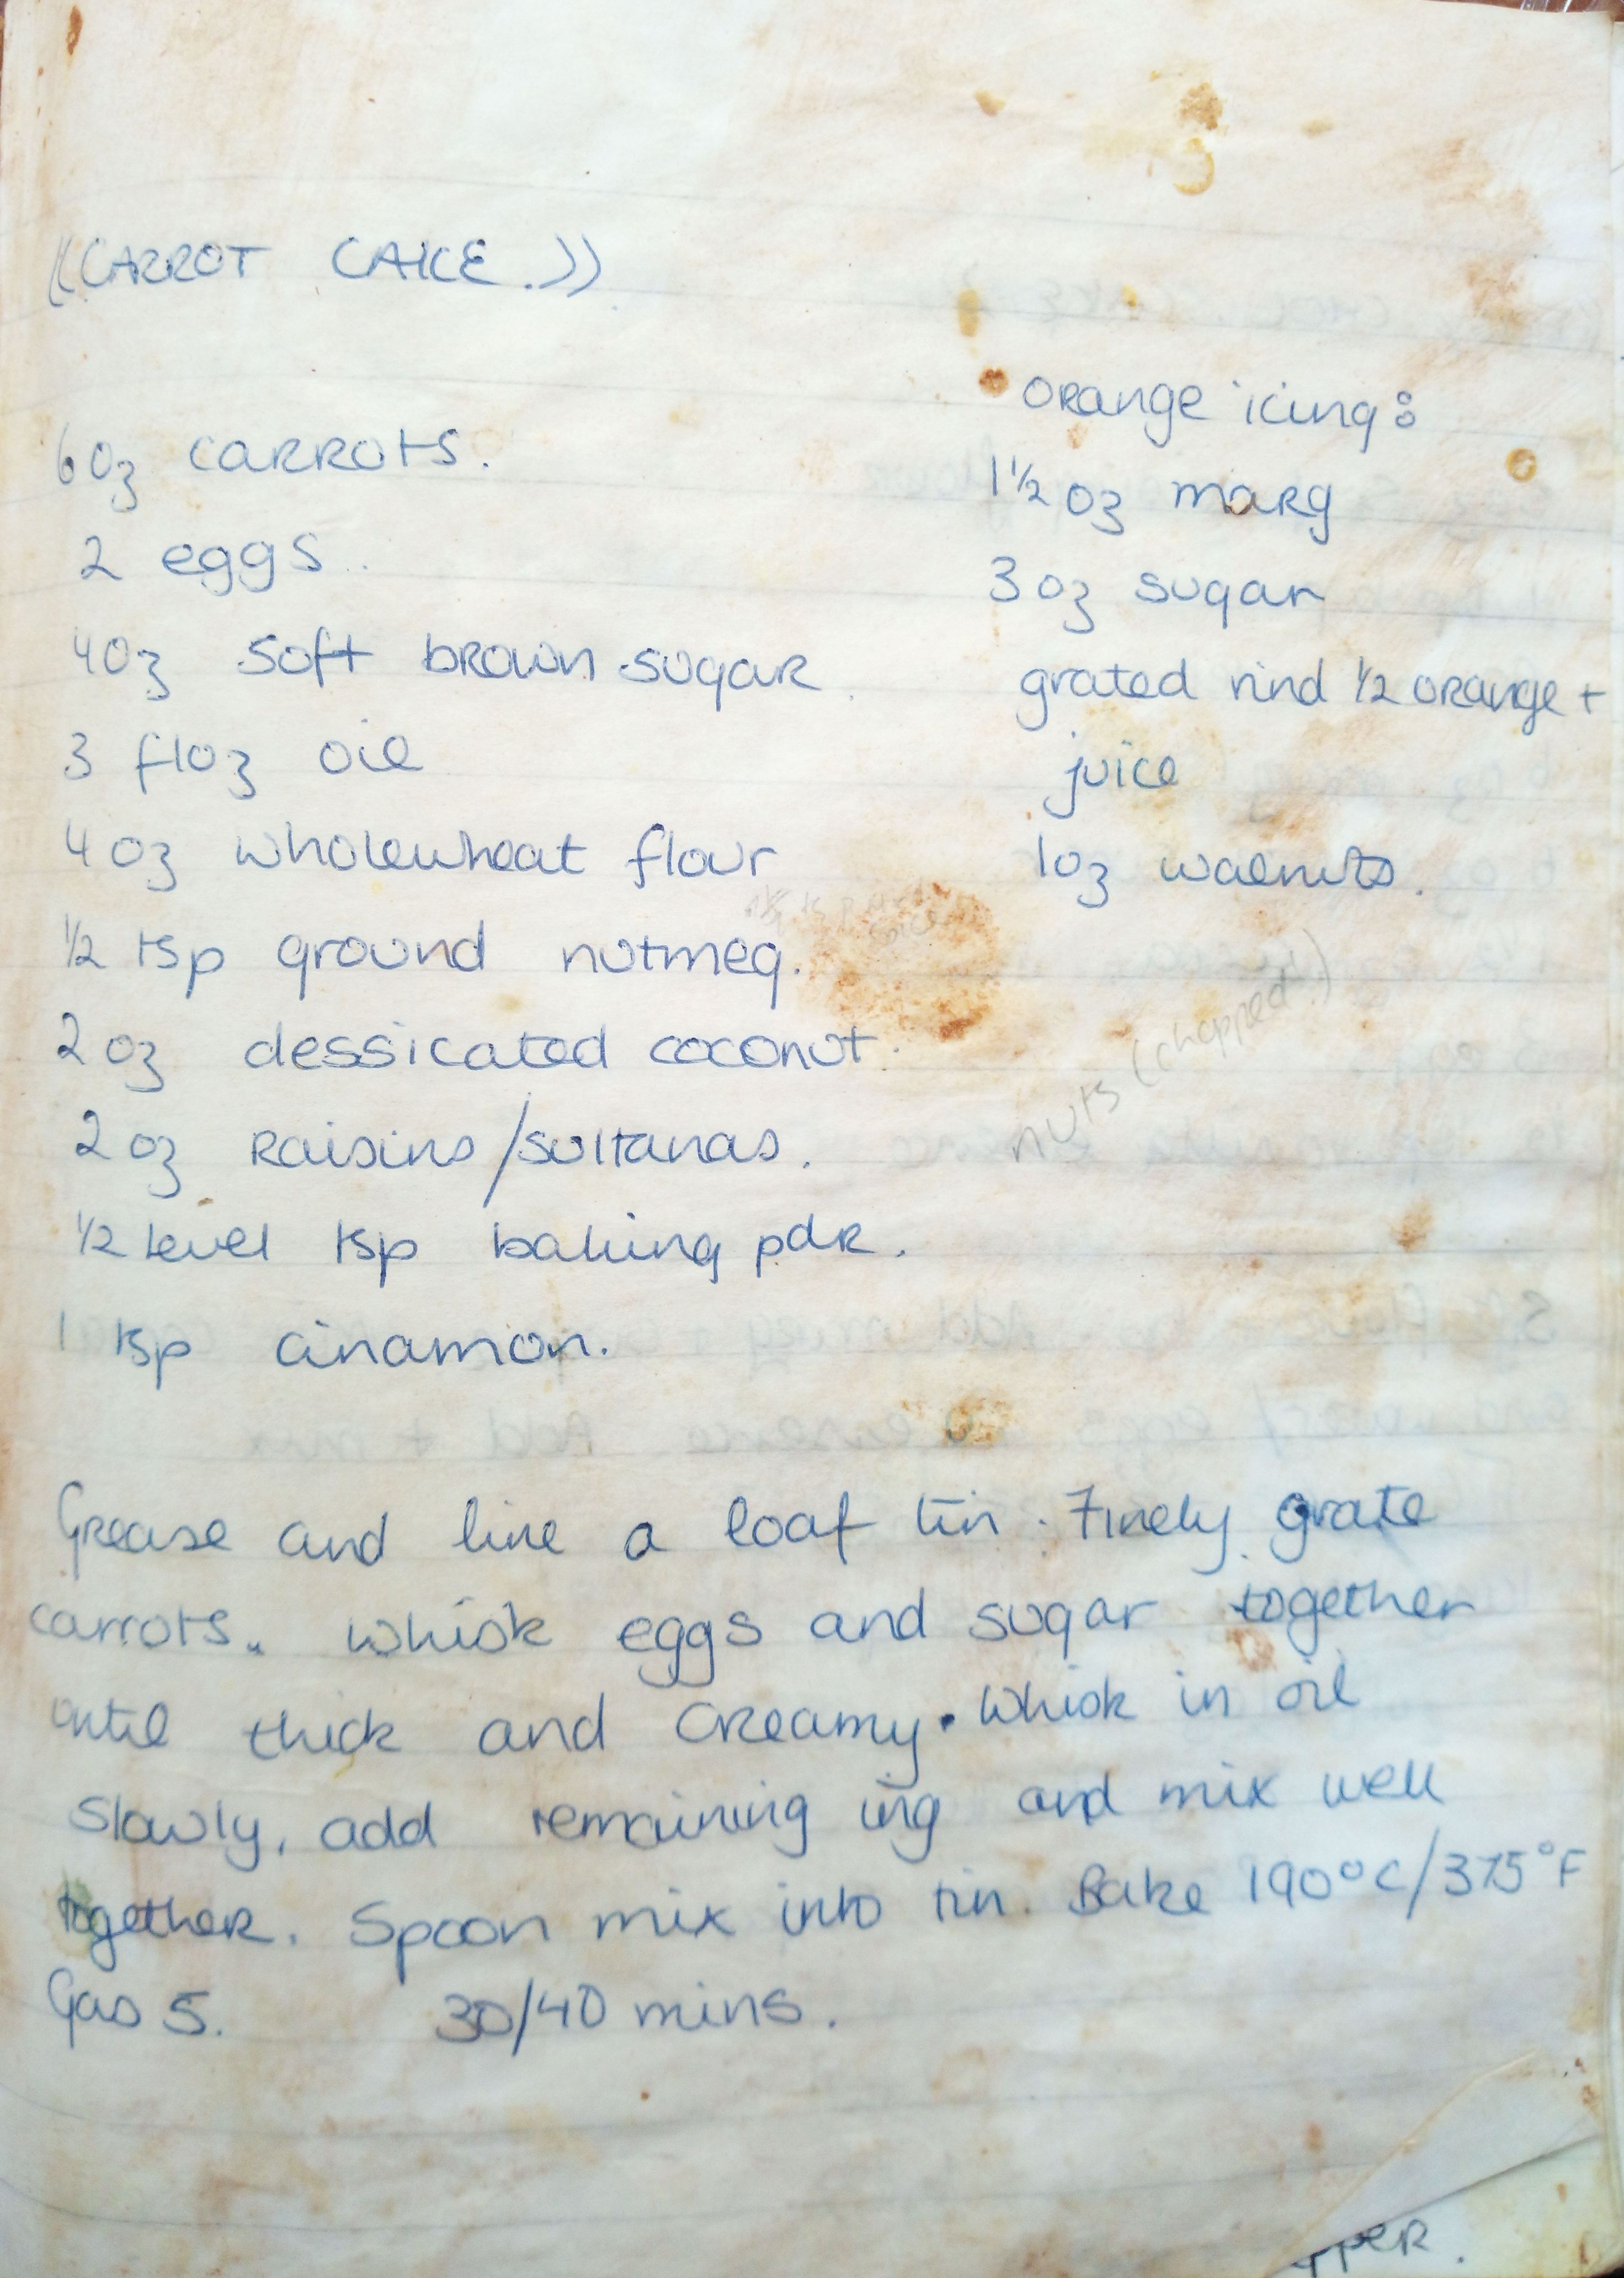 ((CARROT CAKE.))
6oz carrots.
2 eggs.
4oz soft brown sugar.
3 floz oil
4oz wholewheat flour
1/2 tsp ground nutmeg.
2oz dessicated coconut.
2oz Raisins/sultanas.
1/2 level tsp baking pdr.
1 tsp cinamon.
orange icing:
1 1/2 oz marg
3oz sugar
grated rind 1/2 orange +
juice
1oz walnuts.
nuts (chopped!)
Grease and line a loaf tin. Finely grate
carrots. Whisk eggs and sugar together
until thick and creamy. Whisk in oil
slowly, add remaining ing and mix well
together. Spoon mix into tin. Bake 190°C/375°F
Gas 5. 30/40 mins.